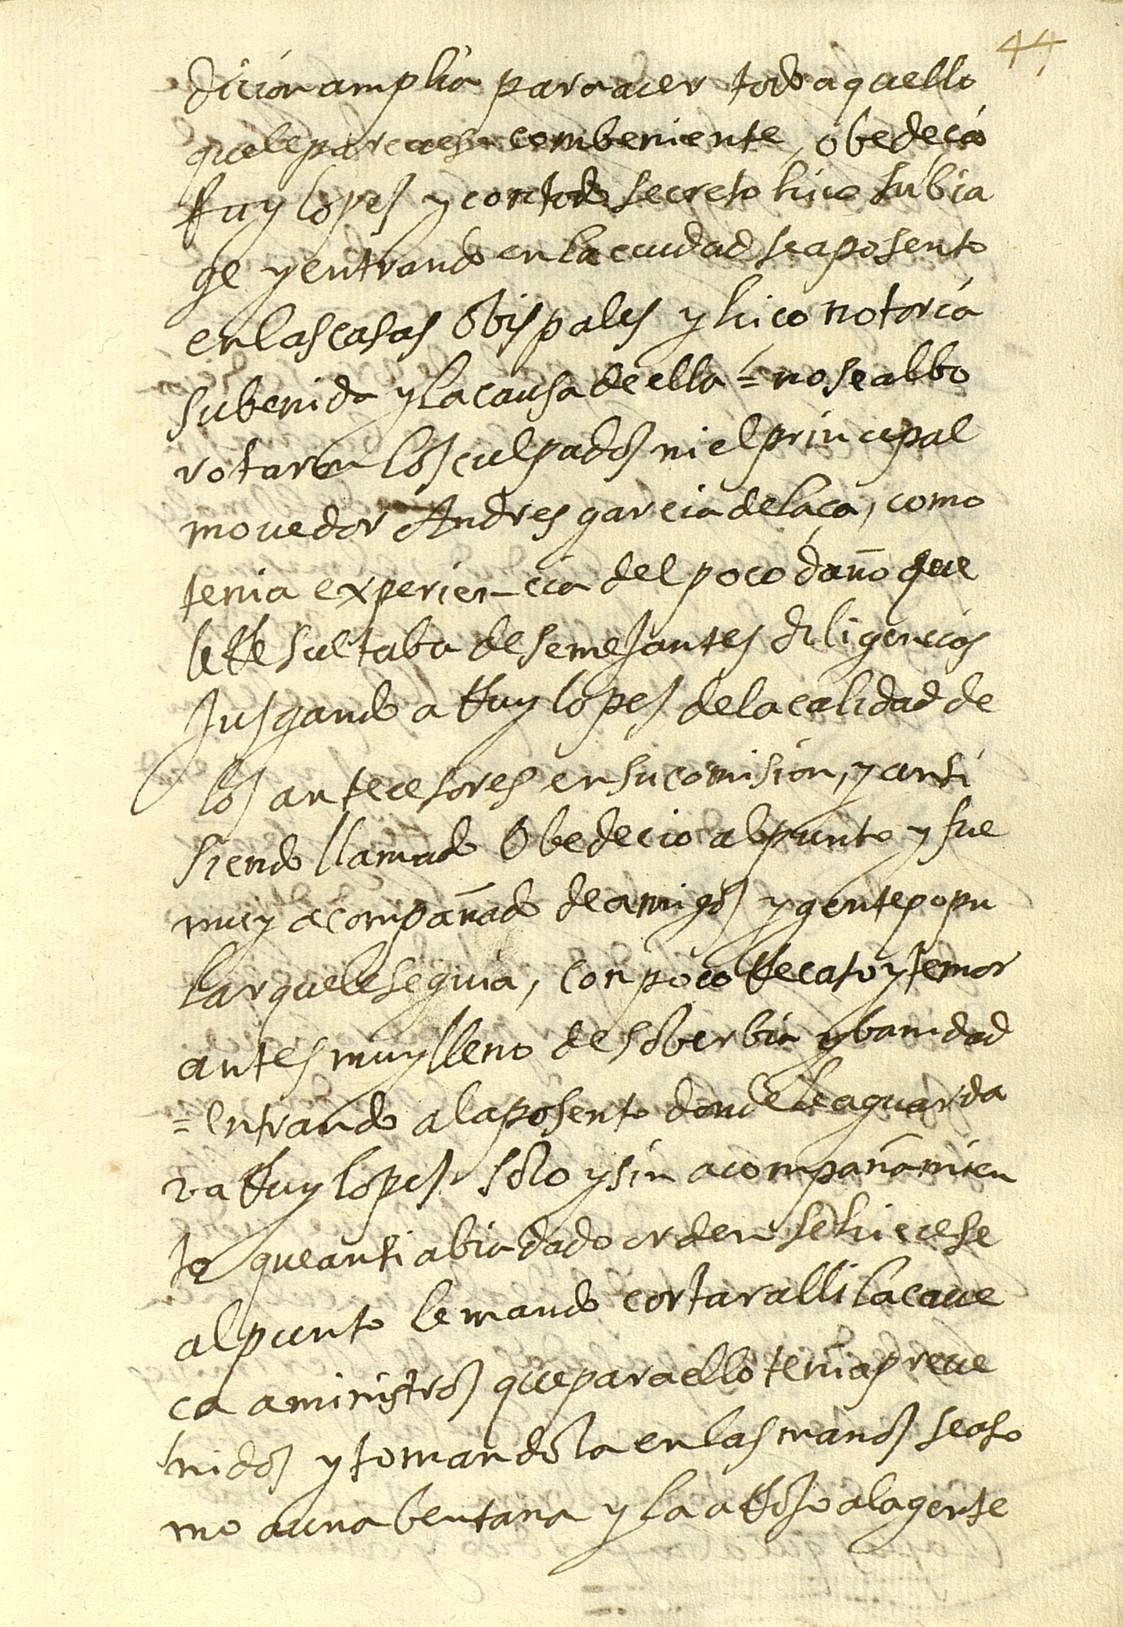 44
dicion amplia para acer todo aquello
que le pareciese combeniente, obedecio
Ruy lopes y con todo secreto hico su bia
ge y entrando en la ciudad se aposento
en las casas obispales y hico notoria
su benida y la causa de ella = no se albo
rotaron los culpados ni el principal
movedor Andres garcia de laça, como
tenia experiencia del poco daño que
le Resultaba de semejantes diligencias
Jusgando a Ruy lopes de la calidad de
los antecesores en su comision, y ansi
siendo llamado obedecio al punto y fue
muy acompañado de amigos y gente popu
lar que le seguia, con poco Recato y temor
antes muy lleno de soberbia y banidad
= entrando al aposento donde le aguarda
va Ruy lopes solo y sin acompañamien
to que ansi abia dado orden se hiciese
al punto le mando cortar alli la cave
ca a ministros que para ello tenia preve
nidos y tomandola en las manos se aso
mo a una bentana y la aRojo a la gente